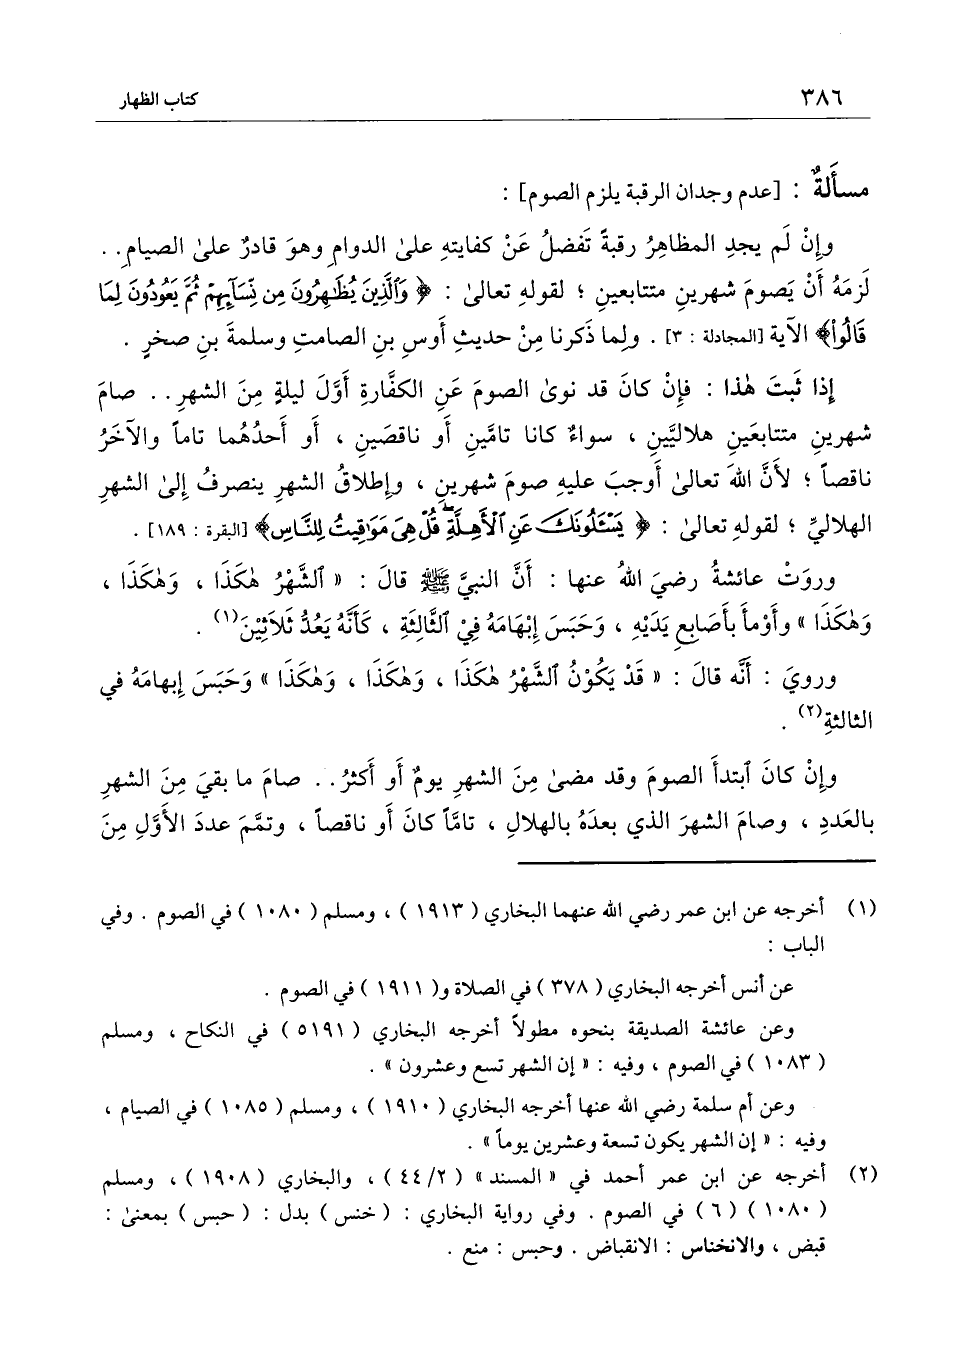 ٣٨٦ كتاب الظهار
مسأَلةٌ : [عدم وجدان الرقبة يلزم الصوم] :
وإِنْ لَم يجدِ المظاهِرُ رقبةً تَفضلُ عَنْ كفايتهِ علىٰ الدوامِ وهوَ قادرٌ علىٰ الصيامِ . .
لَزمَهُ أَنْ يَصومَ شهرينِ متتابعينِ ؛ لقولهِ تعالىٰ : ﴿ وَٱلَّذِينَ يُظَٰهِرُونَ مِن نِّسَآئِهِمۡ ثُمَّ يَعُودُونَ لِمَا
قَالُوا۟﴾ الآية [المجادلة : ٣] . ولِما ذَكرنا مِنْ حديثِ أَوسِ بنِ الصامتِ وسلمةَ بنِ صخرٍ .
إِذا ثَبتَ هٰذا : فإِنْ كانَ قد نوىٰ الصومَ عَنِ الكفَّارةِ أَوَّلَ ليلةٍ مِنَ الشهرِ . . صامَ
شهرينِ متتابعَينِ هلاليَّينِ ، سواءٌ كانا تامَّينِ أَو ناقصَينِ ، أَو أَحدُهُما تاماً والآخَرُ
ناقصاً ؛ لأَنَّ اللهَ تعالىٰ أَوجبَ عليهِ صومَ شهرينِ ، وإِطلاقُ الشهرِ ينصرفُ إِلىٰ الشهرِ
الهلاليِّ ؛ لقولهِ تعالىٰ : ﴿ يَسۡـَٔلُونَكَ عَنِ ٱلۡأَهِلَّةِۖ قُلۡ هِىَ مَوَٰقِيتُ لِلنَّاسِ﴾ [البقرة : ١٨٩] .
وروَتْ عائشةُ رضيَ اللهُ عنها : أَنَّ النبيَّ ﷺ قالَ : « ٱلشَّهْرُ هٰكَذَا ، وَهٰكَذَا ،
وَهٰكَذَا » وأَوْمأَ بأَصَابعِ يَدَيْهِ ، وَحَبَسَ إِبْهَامَهُ فِيْ ٱلثَّالِثَةِ ، كَأَنَّهُ يَعُدُّ ثَلاَثِيْنَ(١) .
ورويَ : أَنَّه قالَ : « قَدْ يَكُوْنُ ٱلشَّهْرُ هٰكَذَا ، وَهٰكَذَا ، وَهٰكَذَا » وَحَبَسَ إِبهامَهُ في
الثالثةِ(٢) .
وإِنْ كانَ ٱبتدأَ الصومَ وقد مضىٰ مِنَ الشهرِ يومٌ أَو أَكثرُ . . صامَ ما بقيَ مِنَ الشهرِ
بالعَددِ ، وصامَ الشهرَ الذي بعدَهُ بالهلالِ ، تامَّاً كانَ أَو ناقصاً ، وتمَّمَ عددَ الأَوَّلِ مِنَ
(١) أخرجه عن ابن عمر رضي الله عنهما البخاري ( ١٩١٣ ) ، ومسلم ( ١٠٨٠ ) في الصوم . وفي
الباب :
عن أنس أخرجه البخاري ( ٣٧٨ ) في الصلاة و( ١٩١١ ) في الصوم .
وعن عائشة الصديقة بنحوه مطولاً أخرجه البخاري ( ٥١٩١ ) في النكاح ، ومسلم
( ١٠٨٣ ) في الصوم ، وفيه : « إن الشهر تسع وعشرون » .
وعن أم سلمة رضي الله عنها أخرجه البخاري ( ١٩١٠ ) ، ومسلم ( ١٠٨٥ ) في الصيام ،
وفيه : « إن الشهر يكون تسعة وعشرين يوماً » .
(٢) أخرجه عن ابن عمر أحمد في « المسند » ( ٤٤/٢ ) ، والبخاري ( ١٩٠٨ ) ، ومسلم
( ١٠٨٠ ) ( ٦ ) في الصوم . وفي رواية البخاري : ( خنس ) بدل : ( حبس ) بمعنىٰ :
قبض ، والانخناس : الانقباض . وحبس : منع .